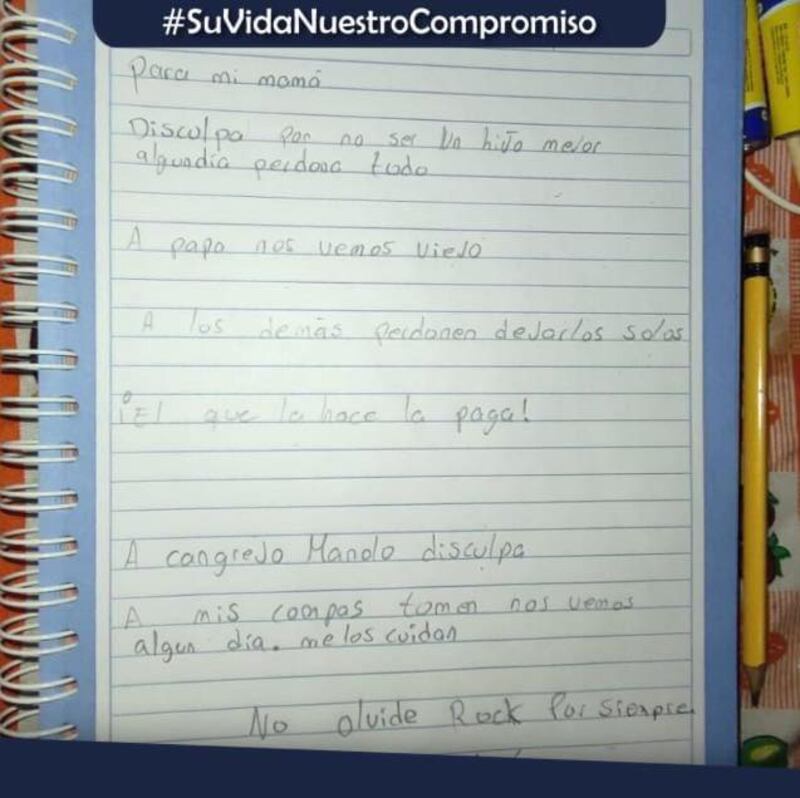 #SuVidaNuestroCompromiso
Para mi mamá
Disculpa por no ser Un hiJo meJor
algundia perdona todo
A papa nos vemos vieJo
A los demás perdonen deJarlos solos
¡El que la hace la paga!
A cangreJo Manolo disculpa
A mis compas tomen nos vemos
algun dia. me los cuidan
No olvide Rock Por siempre